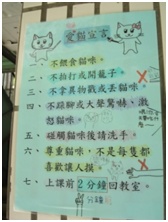 愛貓宣言
一、不餵食貓咪。
二、不拍打或開籠子。
三、不拿異物戳或丟貓咪。
四、不踩腳或大聲驚嚇、激怒貓咪。
五、碰觸貓咪後請洗手。
六、尊重貓咪，不是每隻都
喜歡讓人摸。
七、上課前2分鐘回教室。